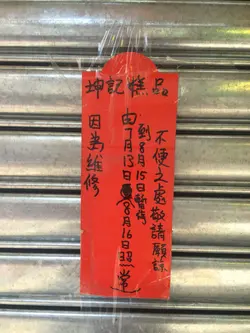 坤記糕品
因為維修
由7月13日
到8月15日暫停
8月16日照常
不便之處敬請願諒